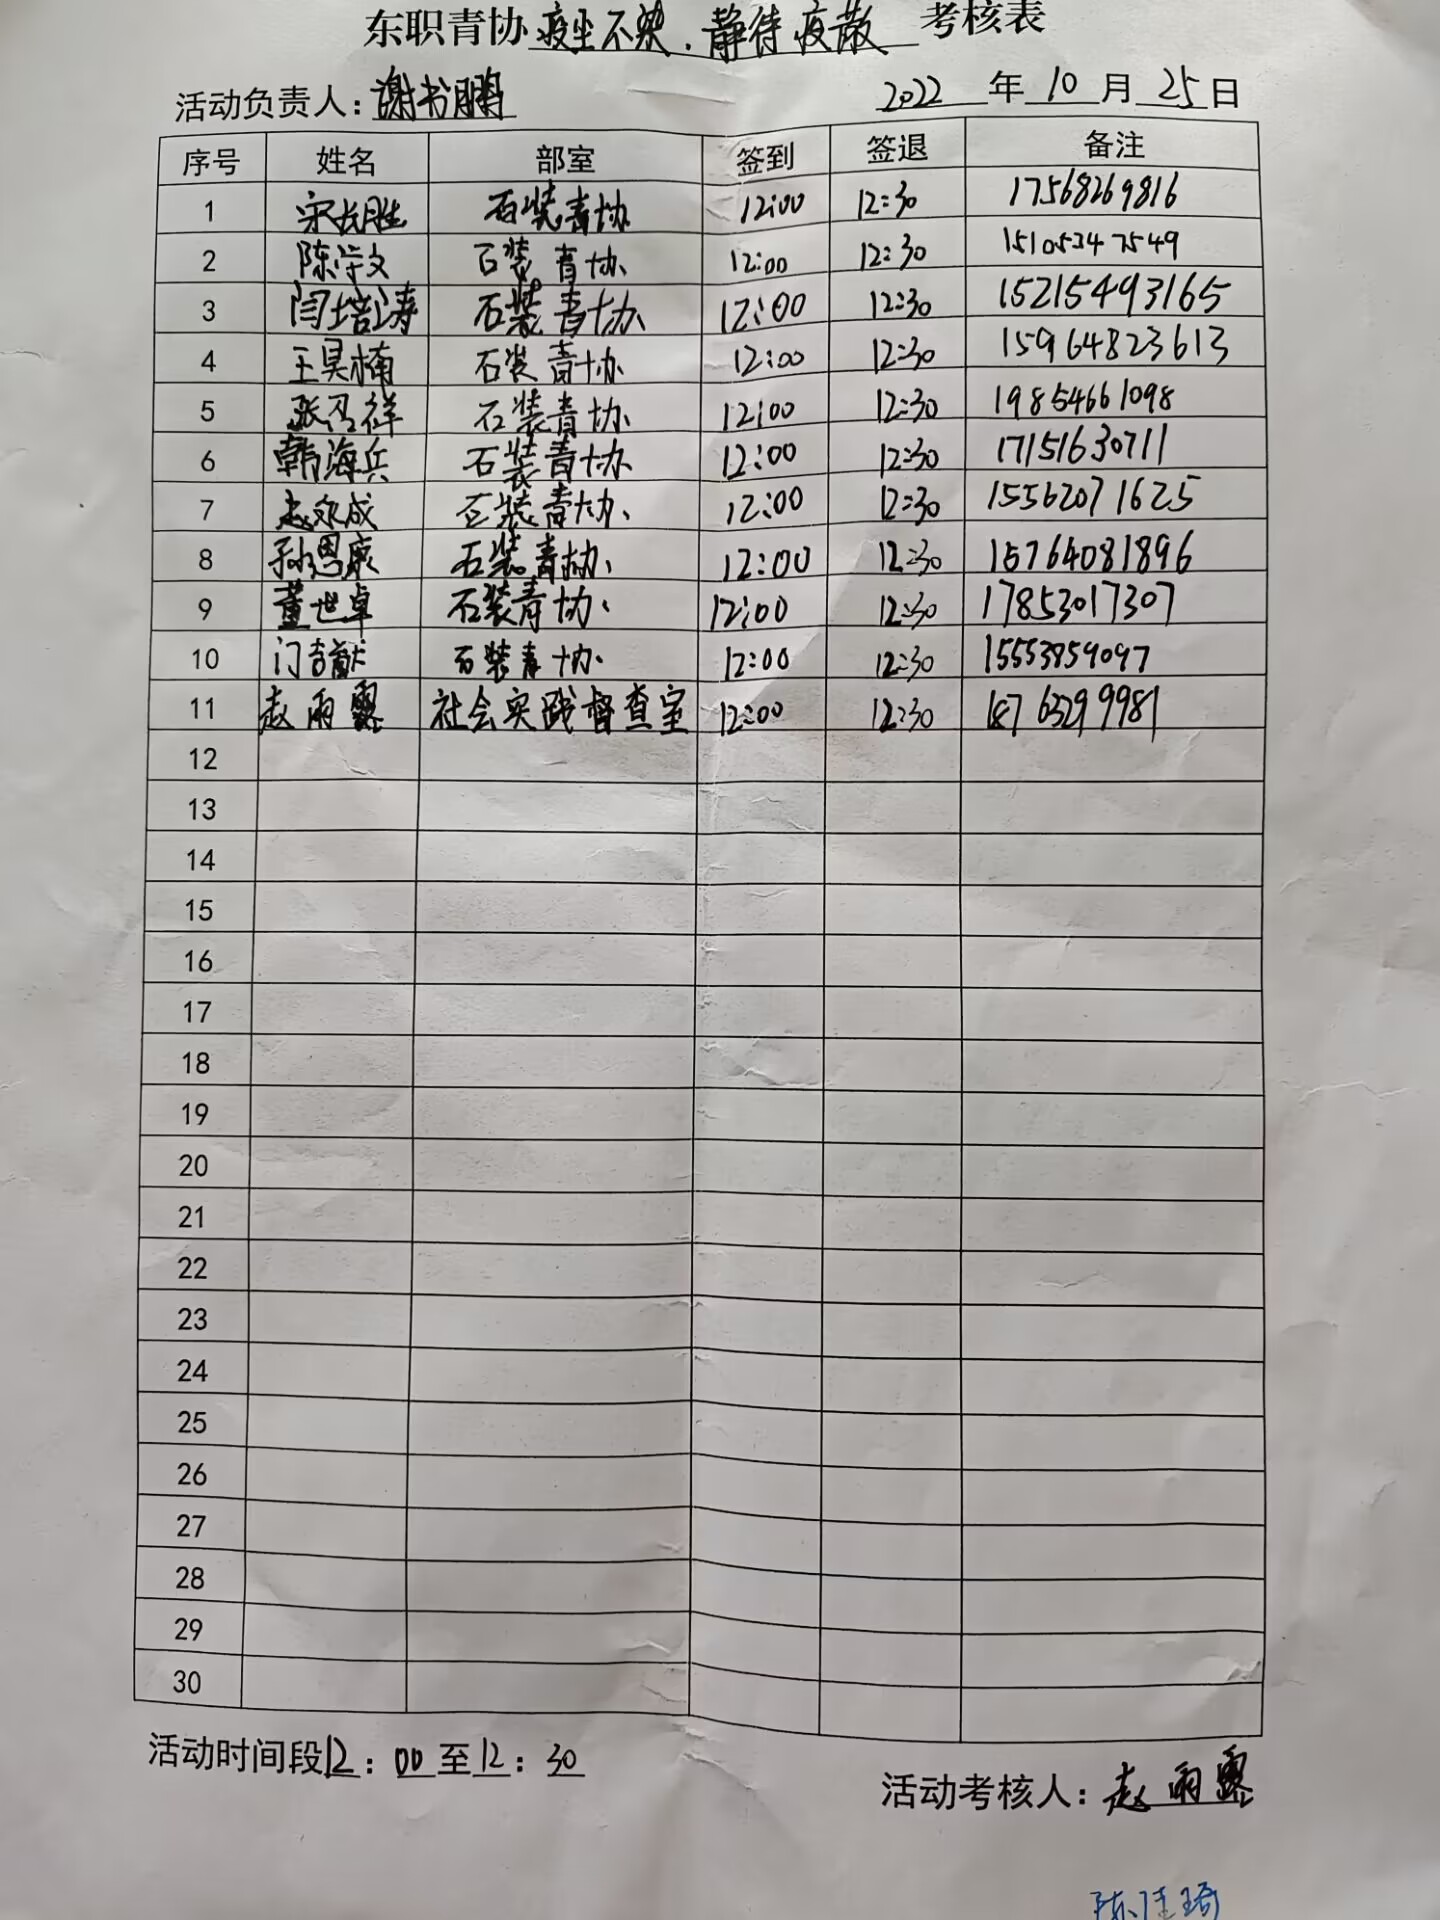 东职青协 疫尘不染，静待疫散 考核表
活动负责人：谢书鹏 2022 年 10 月 25 日
序号 姓名 部室 签到 签退 备注
1 宋长胜 石装青协 12:00 12:30 17568269816
2 陈学文 石装青协 12:00 12:30 15105347549
3 闫培涛 石装青协 12:00 12:30 15215493165
4 王昊楠 石装青协 12:00 12:30 15964823613
5 张 祥 石装青协 12:00 12:30 19854661098
6 韩海兵 石装青协 12:00 12:30 17151630711
7 赵永成 石装青协 12:00 12:30 15562071625
8 孙恩康 石装青协 12:00 12:30 15764081896
9 董世卓 石装青协 12:00 12:30 17853017307
10 门吉献 石装青协 12:00 12:30 15553859097
11 赵雨露 社会实践督查室 12:00 12:30 18763299981
12
13
14
15
16
17
18
19
20
21
22
23
24
25
26
27
28
29
30
活动时间段12：00至12：30
活动考核人：赵雨露
陈佳琦